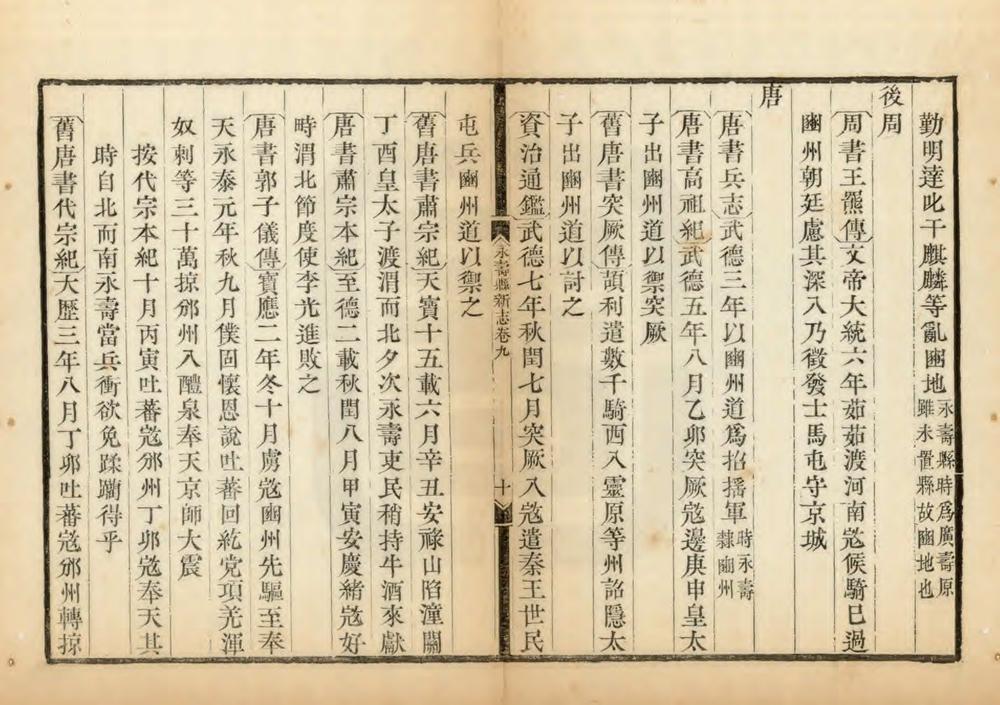 勤明達叱干麒麟等亂豳地永壽縣時爲廣壽原雖未置縣故豳地也
後周
周書王羆傳文帝大統六年茹茹渡河南宼候騎已過
豳州朝廷慮其深入乃徵發士馬屯守京城
唐
唐書兵志武德三年以豳州道爲招搖軍時永壽隸豳州
唐書高祖紀武德五年八月乙卯突厥宼邊庚申皇太
子出豳州道以禦突厥
舊唐書突厥傳頡利遣數千騎西入靈原等州詔隱太
子出豳州道以討之
資治通鑑武德七年秋閏七月突厥入宼遣秦王世民
永壽縣新志卷九
十
屯兵豳州道以禦之
舊唐書肅宗紀天寶十五載六月辛丑安祿山陷潼關
丁酉皇太子渡渭而北夕次永壽吏民稍持牛酒來獻
唐書肅宗本紀至德二載秋閏八月甲寅安慶緒宼好
時渭北節度使李光進敗之
唐書郭子儀傳寶應二年冬十月虜宼豳州先驅至奉
天永泰元年秋九月僕固懷恩說吐蕃回紇党項羌渾
奴剌等三十萬掠邠州入醴泉奉天京師大震
按代宗本紀十月丙寅吐蕃宼邠州丁卯宼奉天其
時自北而南永壽當兵衝欲免蹂躪得乎
舊唐書代宗紀大歷三年八月丁卯吐蕃宼邠州轉掠